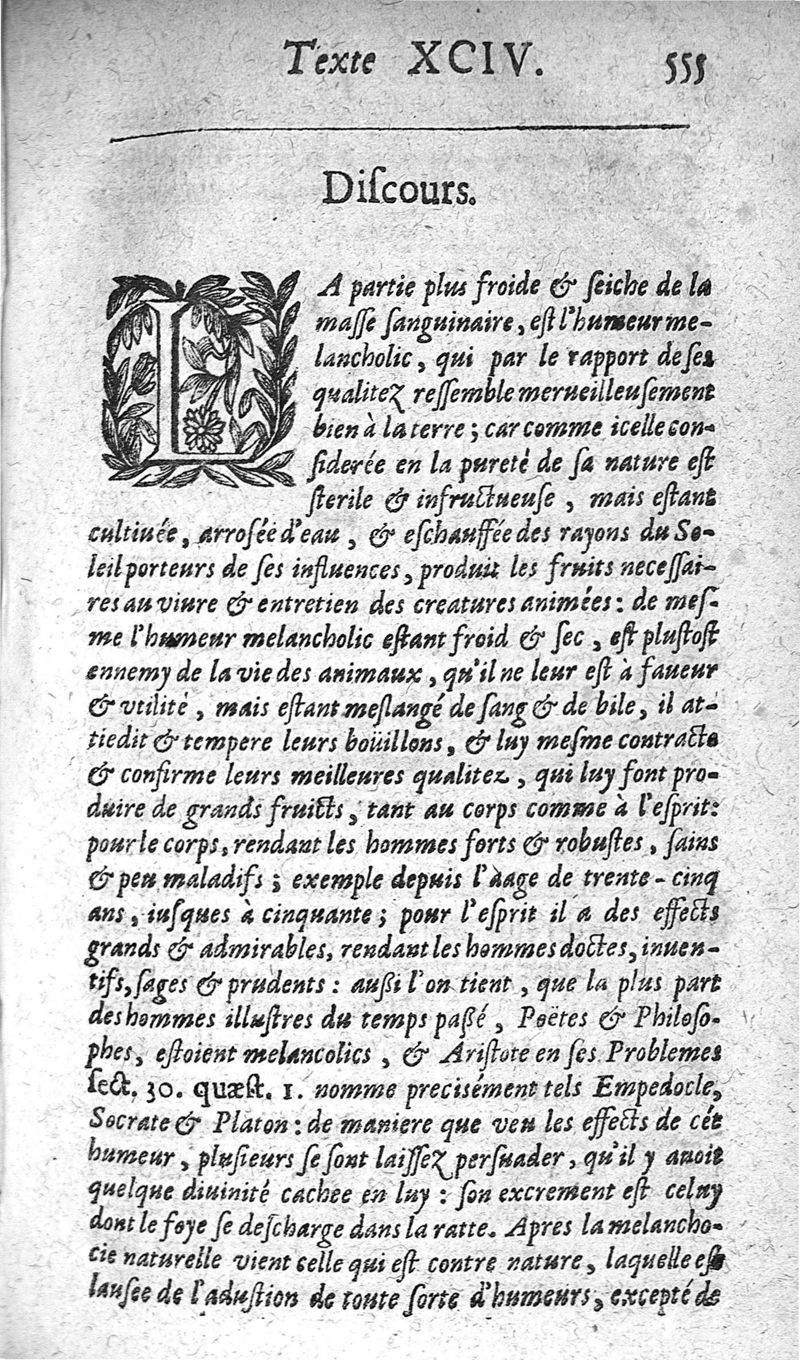 Texte XCIV. 555
Diſcours.
LA partie plus froide & ſeiche de la
maſſe ſanguinaire, eſt l'humeur me-
lancholic, qui par le rapport de ſes
qualitez reſſemble merueilleuſement
bien à la terre; car comme icelle con-
ſiderée en la pureté de ſa nature eſt
ſterile & infructueuſe, mais eſtant
cultiuée, arroſée d'eau, & eſchauffée des rayons du So-
leil porteurs de ſes influences, produit les fruits neceſſai-
res au viure & entretien des creatures animées: de meſ-
me l'humeur melancholic eſtant froid & ſec, eſt pluſtoſt
ennemy de la vie des animaux, qu'il ne leur eſt à faueur
& vtilité, mais eſtant meſlangé de ſang & de bile, il at-
tiedit & tempere leurs boüillons, & luy meſme contracte
& confirme leurs meilleures qualitez, qui luy font pro-
duire de grands fruicts, tant au corps comme à l'eſprit:
pour le corps, rendant les hommes forts & robuſtes, ſains
& peu maladifs; exemple depuis l'àage de trente-cinq
ans, iuſques à cinquante; pour l'eſprit il a des effects
grands & admirables, rendant les hommes doctes, inuen-
tifs, ſages & prudents: außi l'on tient, que la plus part
des hommes illuſtres du temps paßé, Poëtes & Philoſo-
phes, eſtoient melancolics, & Ariſtote en ſes Problemes
ſect. 30. quæſt. 1. nomme preciſément tels Empedocle,
Socrate & Platon: de maniere que veu les effects de cét
humeur, pluſieurs ſe ſont laiſſez perſuader, qu'il y auoit
quelque diuinité cachee en luy: ſon excrement eſt celuy
dont le foye ſe deſcharge dans la ratte. Apres la melancho-
cie naturelle vient celle qui eſt contre nature, laquelle eſt
lauſee de l'aduſtion de toute ſorte d'humeurs, excepté de